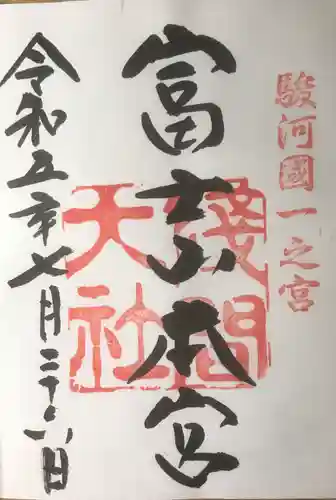 駿河國一之宮
富士山本宮
淺間
大社
令和五年七月二十八日